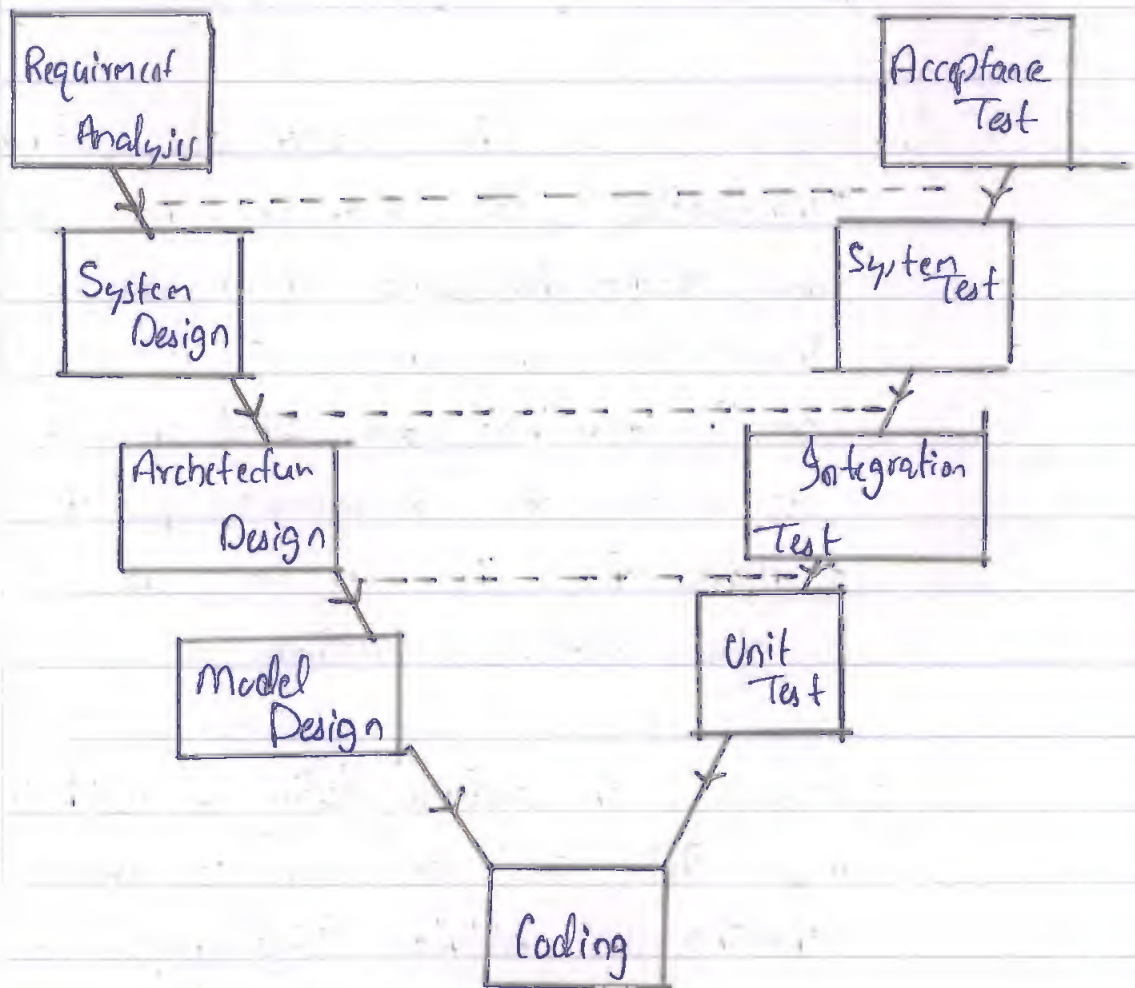 Requirment
Analysis
Acceptance
Test
System
Design
System
Test
Archetectun
Design
Integration
Test
Model
Design
Unit
Test
Coding